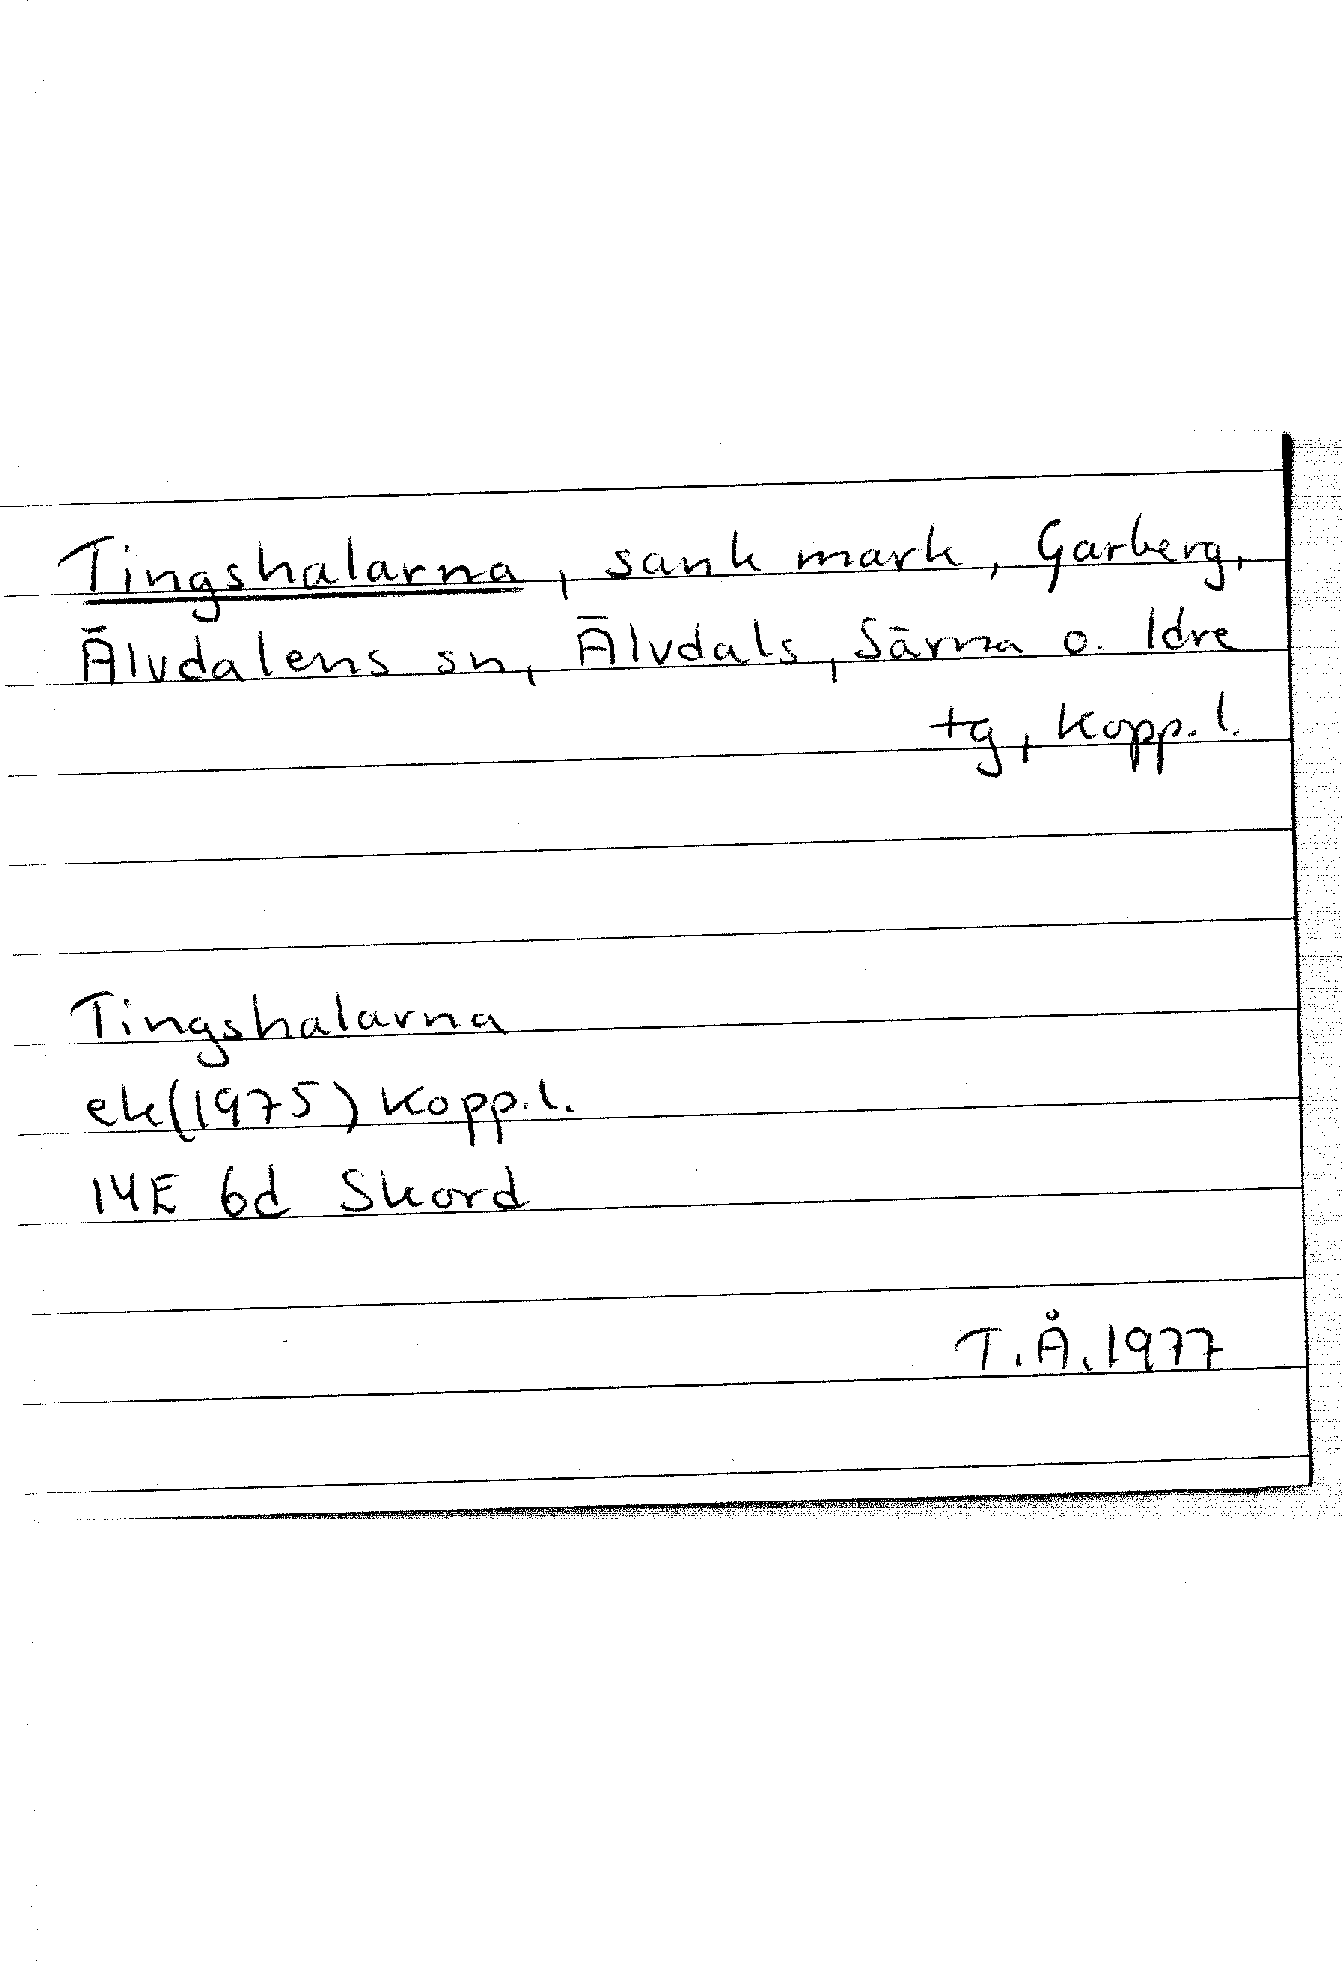 Tingshalarna, sank mark, Garberg,
Älvdalens sn, Älvdals, Särna o. Idre
tg, Kopp. l.
Tingshalarna
ek(1975) Kopp. l.
14E 6d Skord
T.Å. 1977